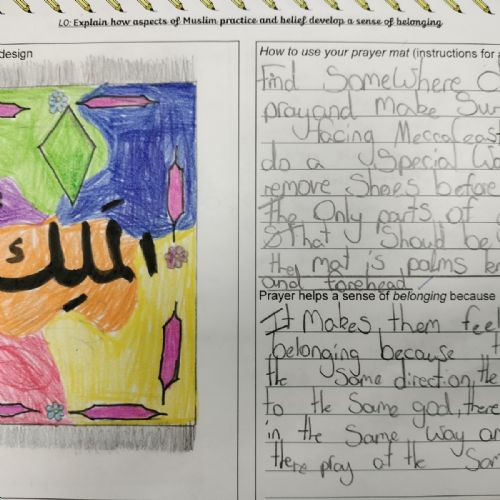 LO: Explain how aspects of Muslim practice and belief develop a sense of belonging
design
How to use your prayer mat (instructions for
find SomeWhere
pray and Make Su
facing Mecca east
do a Special Wa
remove Shoes before
The Only parts of
that Should be
the mat is palms
and forehead
Prayer helps a sense of belonging because
It Makes them feel
belonging because
the Same direction, the
to the Same god, there
in the Same Way an
there pray at the Sam
الملك